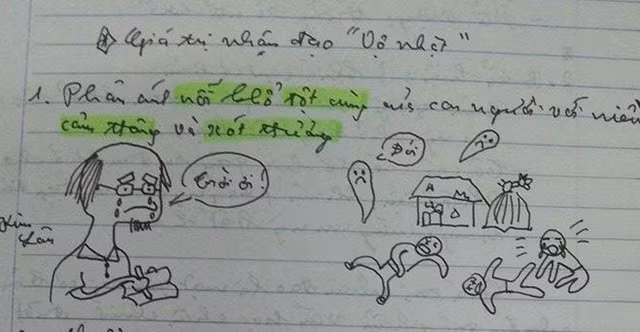 Giá trị nhân đạo "Vợ nhặt"
1. Phản ánh nỗi khổ tột cùng của con người với niềm
cảm thông và xót thương
Trời ơi!
Đói
Kim
Lân